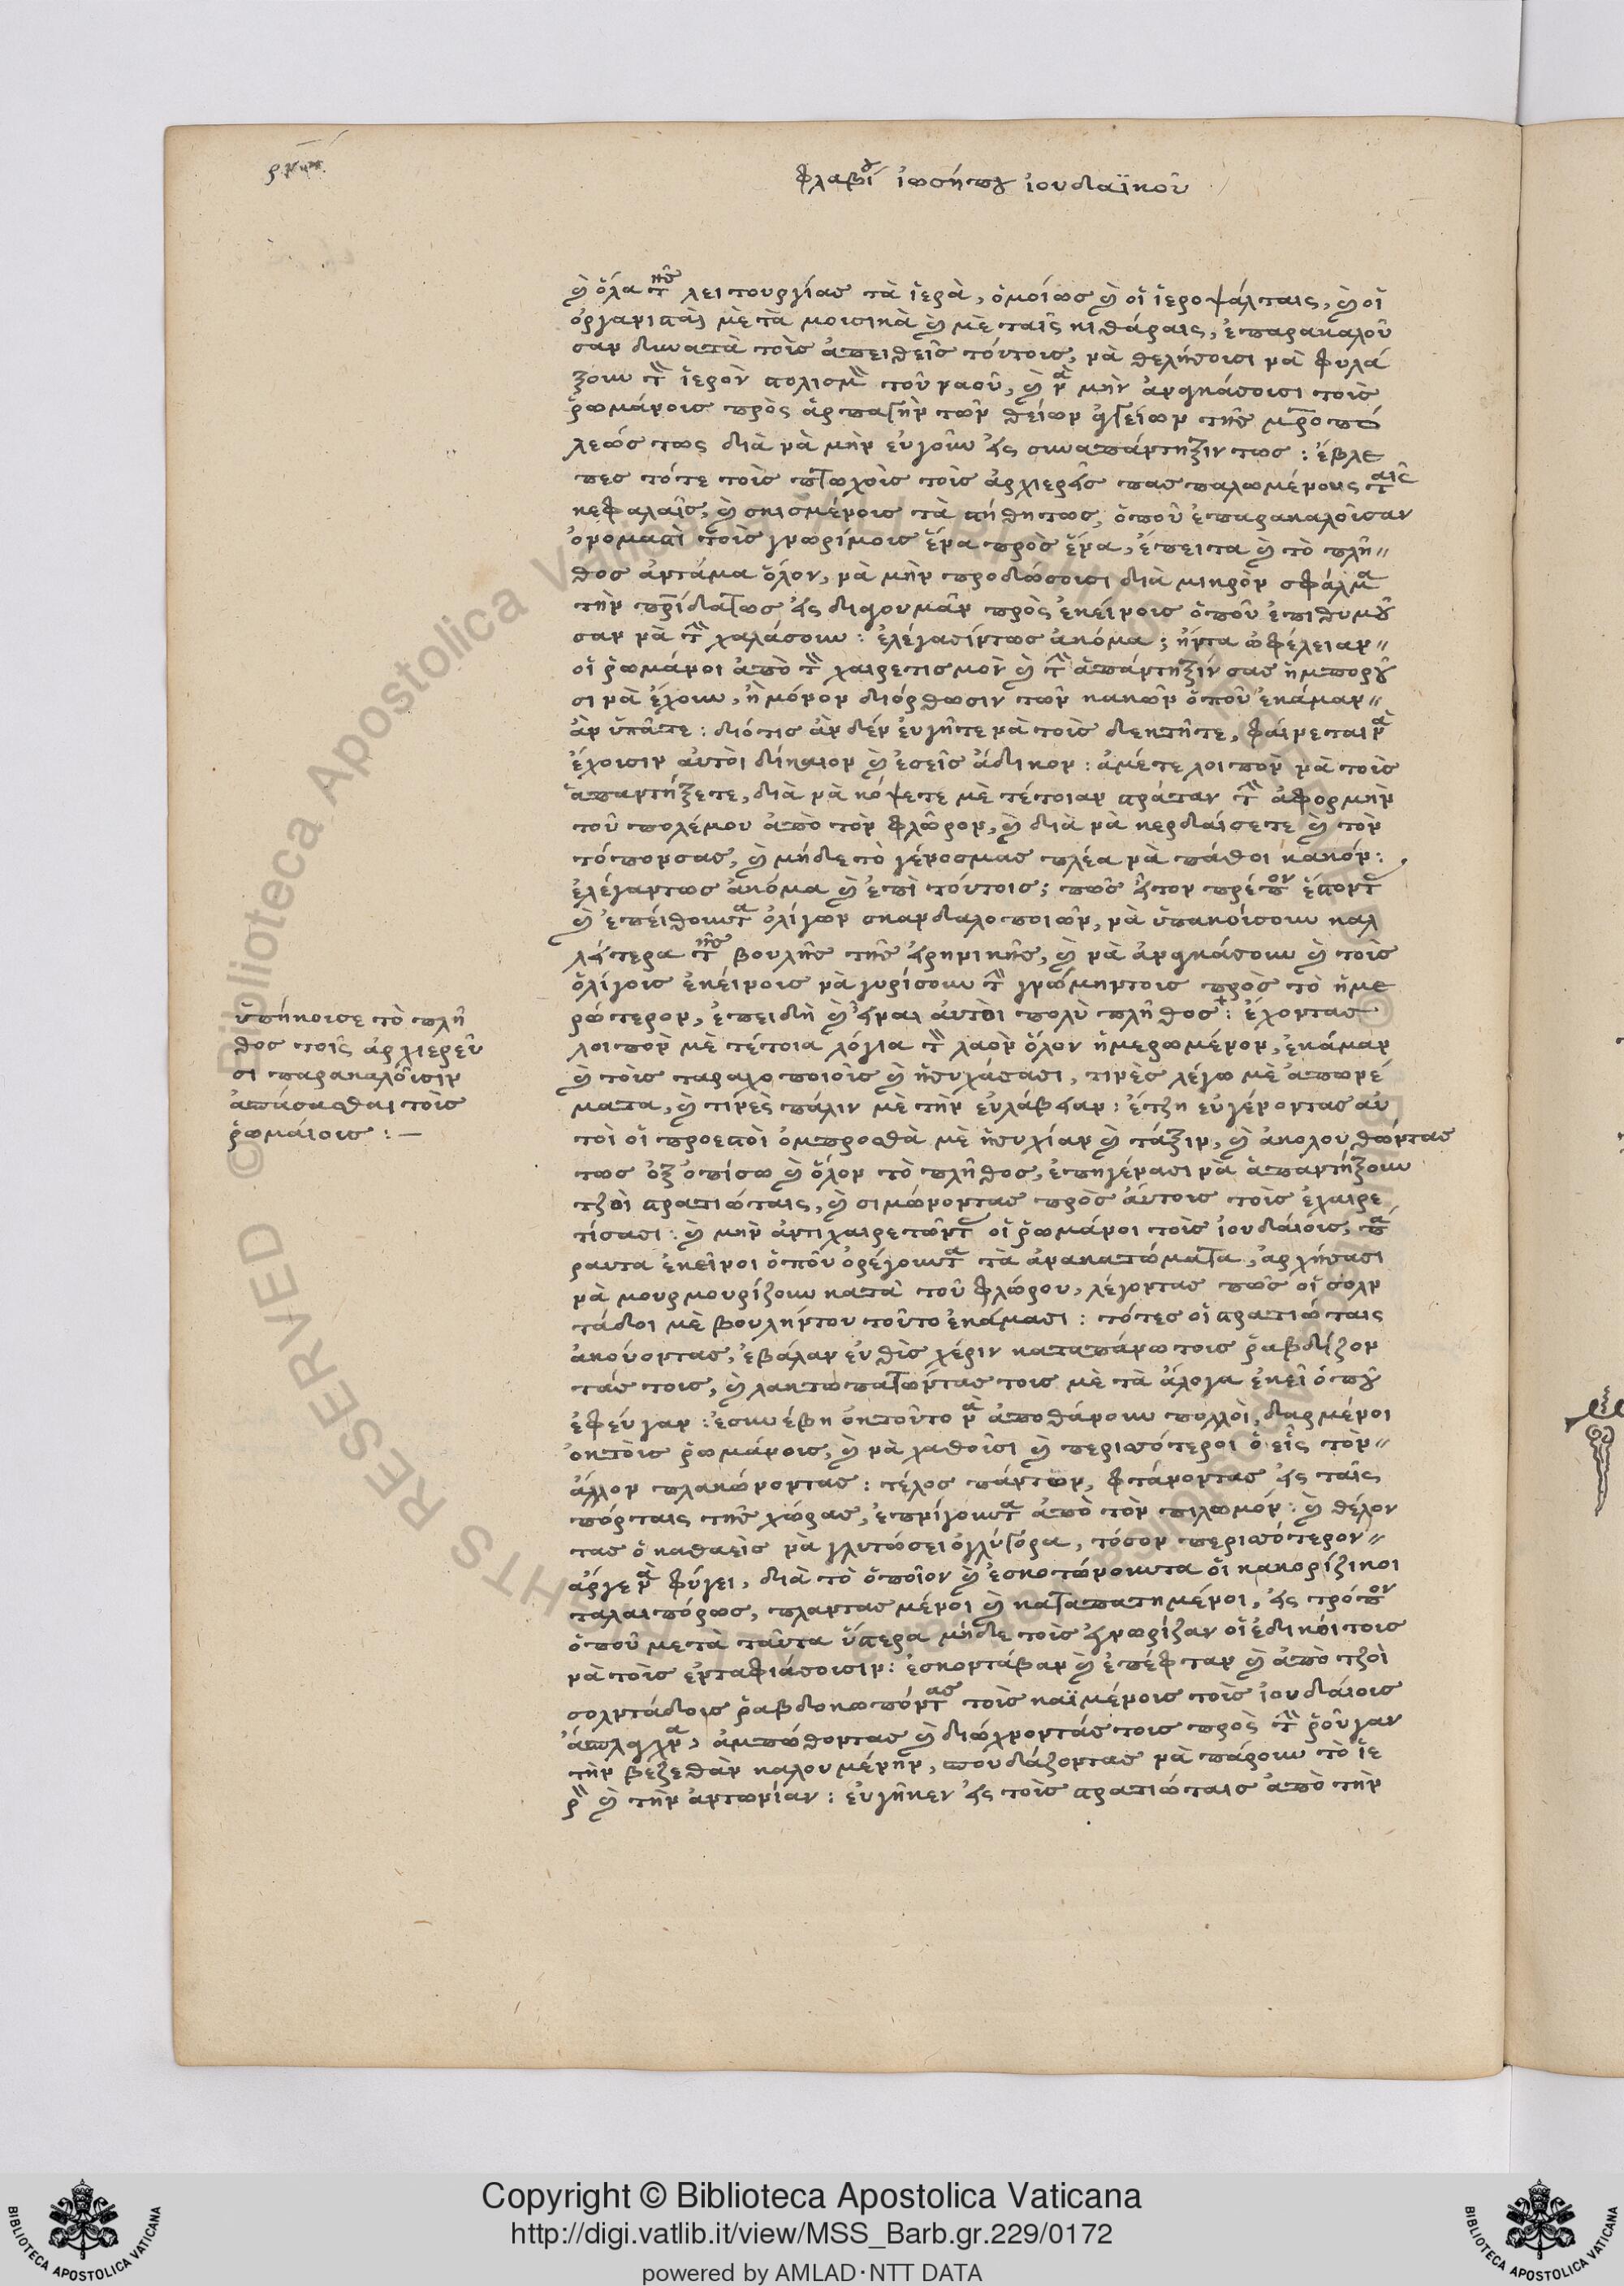 φλαβίου ἰωσήπου ἰουδαϊκοῦ
καὶ ὅλα τῆς λειτουργίας τὰ ἱερὰ, ὁμοίως καὶ οἱ ἱεροψάλταις, καὶ οἱ
ὀργανισταὶ μὲ τὰ μουσικὰ καὶ μὲ ταῖς κιθάραις, ἐπαρακαλοῦ
σαν δυνατὰ τοὶς ἀπειθεῖς τούτοις, νὰ θελήσοισι νὰ φυλά
ξουν τὸν ἱερὸν στολισμὸν τοῦ ναοῦ, καὶ νὰ μὴν ἀναγκάσοισι τοὶς
ῥωμάνοις πρὸς ἁρπαγὴν τῶν θείων ἀγγείων τῆς μητροπό
λεώς τως διὰ νὰ μὴν εὐγοῦν εἰς συναπάντηξιν τως : ἔβλε
πες τότε τοὶς πτωχοὶς τοὶς ἀρχιερεῖς πασπαλωμένους ταῖς
κεφαλαῖς, καὶ σκισμένοις τὰ στήθη τως, ὁποῦ ἐπαρακαλοῖσαν
ὀνομαστὶ τοὶς γνωρίμοις ἕνα πρὸς ἕνα, ἔπειτα καὶ τὸ πλῆ
θος ἀντάμα ὅλον, νὰ μὴν προδώσοισι διὰ μικρὸν σφάλμα
τὴν πατρίδα τως εἰς διγουμᾶν πρὸς ἐκείνοις ὁποῦ ἐπιθυμοῦ
σαν νὰ τὴν χαλάσουν : ἐλέγασίν τως ἀκόμα ; ἤντα ὠφέλειαν
οἱ ῥωμάνοι ἀπὸ τὸν χαιρετισμὸν καὶ τὴν ἀπάντηξίν σας ἠμποροῦ
σι νὰ ἔχουν, ἢ μόνον διόρθωσιν τῶν κακῶν ὁποῦ ἐκάμαν
ἂν ὑπᾶτε : διότις ἂν δὲν εὐγῆτε νὰ τοὶς δεκτῆτε, φαίνεται νὰ
ἔχοισιν αὐτοὶ δίκαιον καὶ ἐσεῖς ἄδικον : ἀμέτε λοιπὸν νὰ τοὶς
ἀπαντήξετε, διὰ νὰ κόψετε μὲ τέτοιαν στράταν τὴν ἀφορμὴν
τοῦ πολέμου ἀπὸ τὸν φλῶρον, καὶ διὰ νὰ κερδαίσετε καὶ τὸν
τόπον σας, καὶ μήδε τὸ γένος μας πλέα νὰ πάθοι κακόν :
ἐλέγαν τως ἀκόμα καὶ ἐπὶ τούτοις ; πῶς εἶτον πρέπον ἔστοντας
καὶ ἐπείθουντα ὀλίγων σκανδαλοποιῶν, νὰ ὑπακοίσουν καλ
λείτερα τῆς βουλῆς τῆς εἰρηνικῆς, καὶ νὰ ἀναγκάσουν καὶ τοὶς
ὀλίγοις ἐκείνοις νὰ γυρίσουν τὴν γνώμην τοις πρὸς τὸ ἡμε
ρώτερον, ἐπειδὴ καὶ εἶναι αὐτοὶ πολὺ πλῆθος : ἔχοντας
λοιπὸν μὲ τέτοια λόγια τὸν λαὸν ὅλον ἡμερωμένον, ἐκάμαν
καὶ τοὶς ταραχοποιοὶς καὶ ἡσυχάσασι, τινὲς λέγω μὲ ἀπωρέ
ματα, καὶ τινὲς πάλιν μὲ τὴν εὐλάβειαν : ἔτζη εὐγένοντας αὐ
τοὶ οἱ προεστοὶ ὀμπροσθὰ μὲ ἡσυχίαν καὶ τάξιν, καὶ ἀκολουθῶντας
τως ὀξοπίσω καὶ ὅλον τὸ πλῆθος, ἐπηγένασι νὰ ἀπαντήξουν
τζοὶ στρατιώταις, καὶ σιμώνοντας πρὸς αὐτοις τοὶς ἐχαιρε
τίσασι : καὶ μὴν ἀντιχαιρετῶντας οἱ ῥωμάνοι τοὶς ἰουδαίοις,
ραυτα ἐκεῖνοι ὁποῦ ὀρέγουντα τὰ ἀνακατώματα, ἀρχήσασι
νὰ μουρμουρίζουν κατὰ τοῦ φλώρου, λέγοντας πῶς οἱ σολν
τάδοι μὲ βουλήν του τοῦτο ἐκάμασι : τότες οἱ στρατιώταις
ἀκούοντας, ἐβάλαν εὐθὶς χέριν καταπάνω τοις ῥαβδίζον
τάς τοις, καὶ λακτωπατῶντας τοις μὲ τὰ ἄλογα ἐκεῖ ὁποῦ
ἐφεύγαν : ἐσυνέβη ὀκτοῦτο νὰ ἀποθάνουν πολλοὶ, δαρμένοι
ὀκτοὶς ῥωμάνοις, καὶ νὰ χαθοῦσι καὶ περισσότεροι ὁ εἷς τὸν
ἄλλον πλακώνοντας : τέλος πάντων, φτάνοντας εἰς ταῖς
πόρταις τῆς χώρας, ἐπνίγουντα ἀπὸ τὸν πιλωμόν : καὶ θέλον
τας ὁ καθαεὶς νὰ γλυτώσει ὀγλύγορα, τόσον περισσότερον
ἄργε νὰ φύγει, διὰ τὸ ὁποῖον καὶ ἐσκοτώνουντα οἱ κακορίζικοι
ταλαιπόρως, πλαντασμένοι καὶ καταπατημένοι, εἰς τρόπον
ὁποῦ μετὰ ταῦτα ὕστερα μήδε τοὶς ἐγνωρίζαν οἱ ἐδικοί τοις
νὰ τοὶς ἐνταφιάσοισιν : ἐσκοντάβαν καὶ ἐπέφταν καὶ ἀπὸ τζοὶ
σολντάδοις ῥαβδοκωπόντας τοὶς καϊμένοις τοὶς ἰουδαίοις
ἀμπώθοντας καὶ διώχνοντάς τοις πρὸς τὴν ῥοῦγαν
τὴν βεζεθὰν καλουμένην, σπουδάζοντας νὰ πάρουν τὸ ἱε
ρὸν καὶ τὴν ἀντωνίαν : εὐγῆκεν εἰς τοὶς στρατιώταις ἀπὸ τὴν
ὑπήκοισε τὸ πλῆ
θος τοῖς ἀρχιερεῦ
σι παρακαλοῖσιν
ἀσπάσασθαι τοὶς
ῥωμαίοις : —
Copyright © Biblioteca Apostolica Vaticana
http://digi.vatlib.it/view/MSS_Barb.gr.229/0172
powered by AMLAD·NTT DATA
BIBLIOTECA APOSTOLICA VATICANA
BIBLIOTECA APOSTOLICA VATICANA